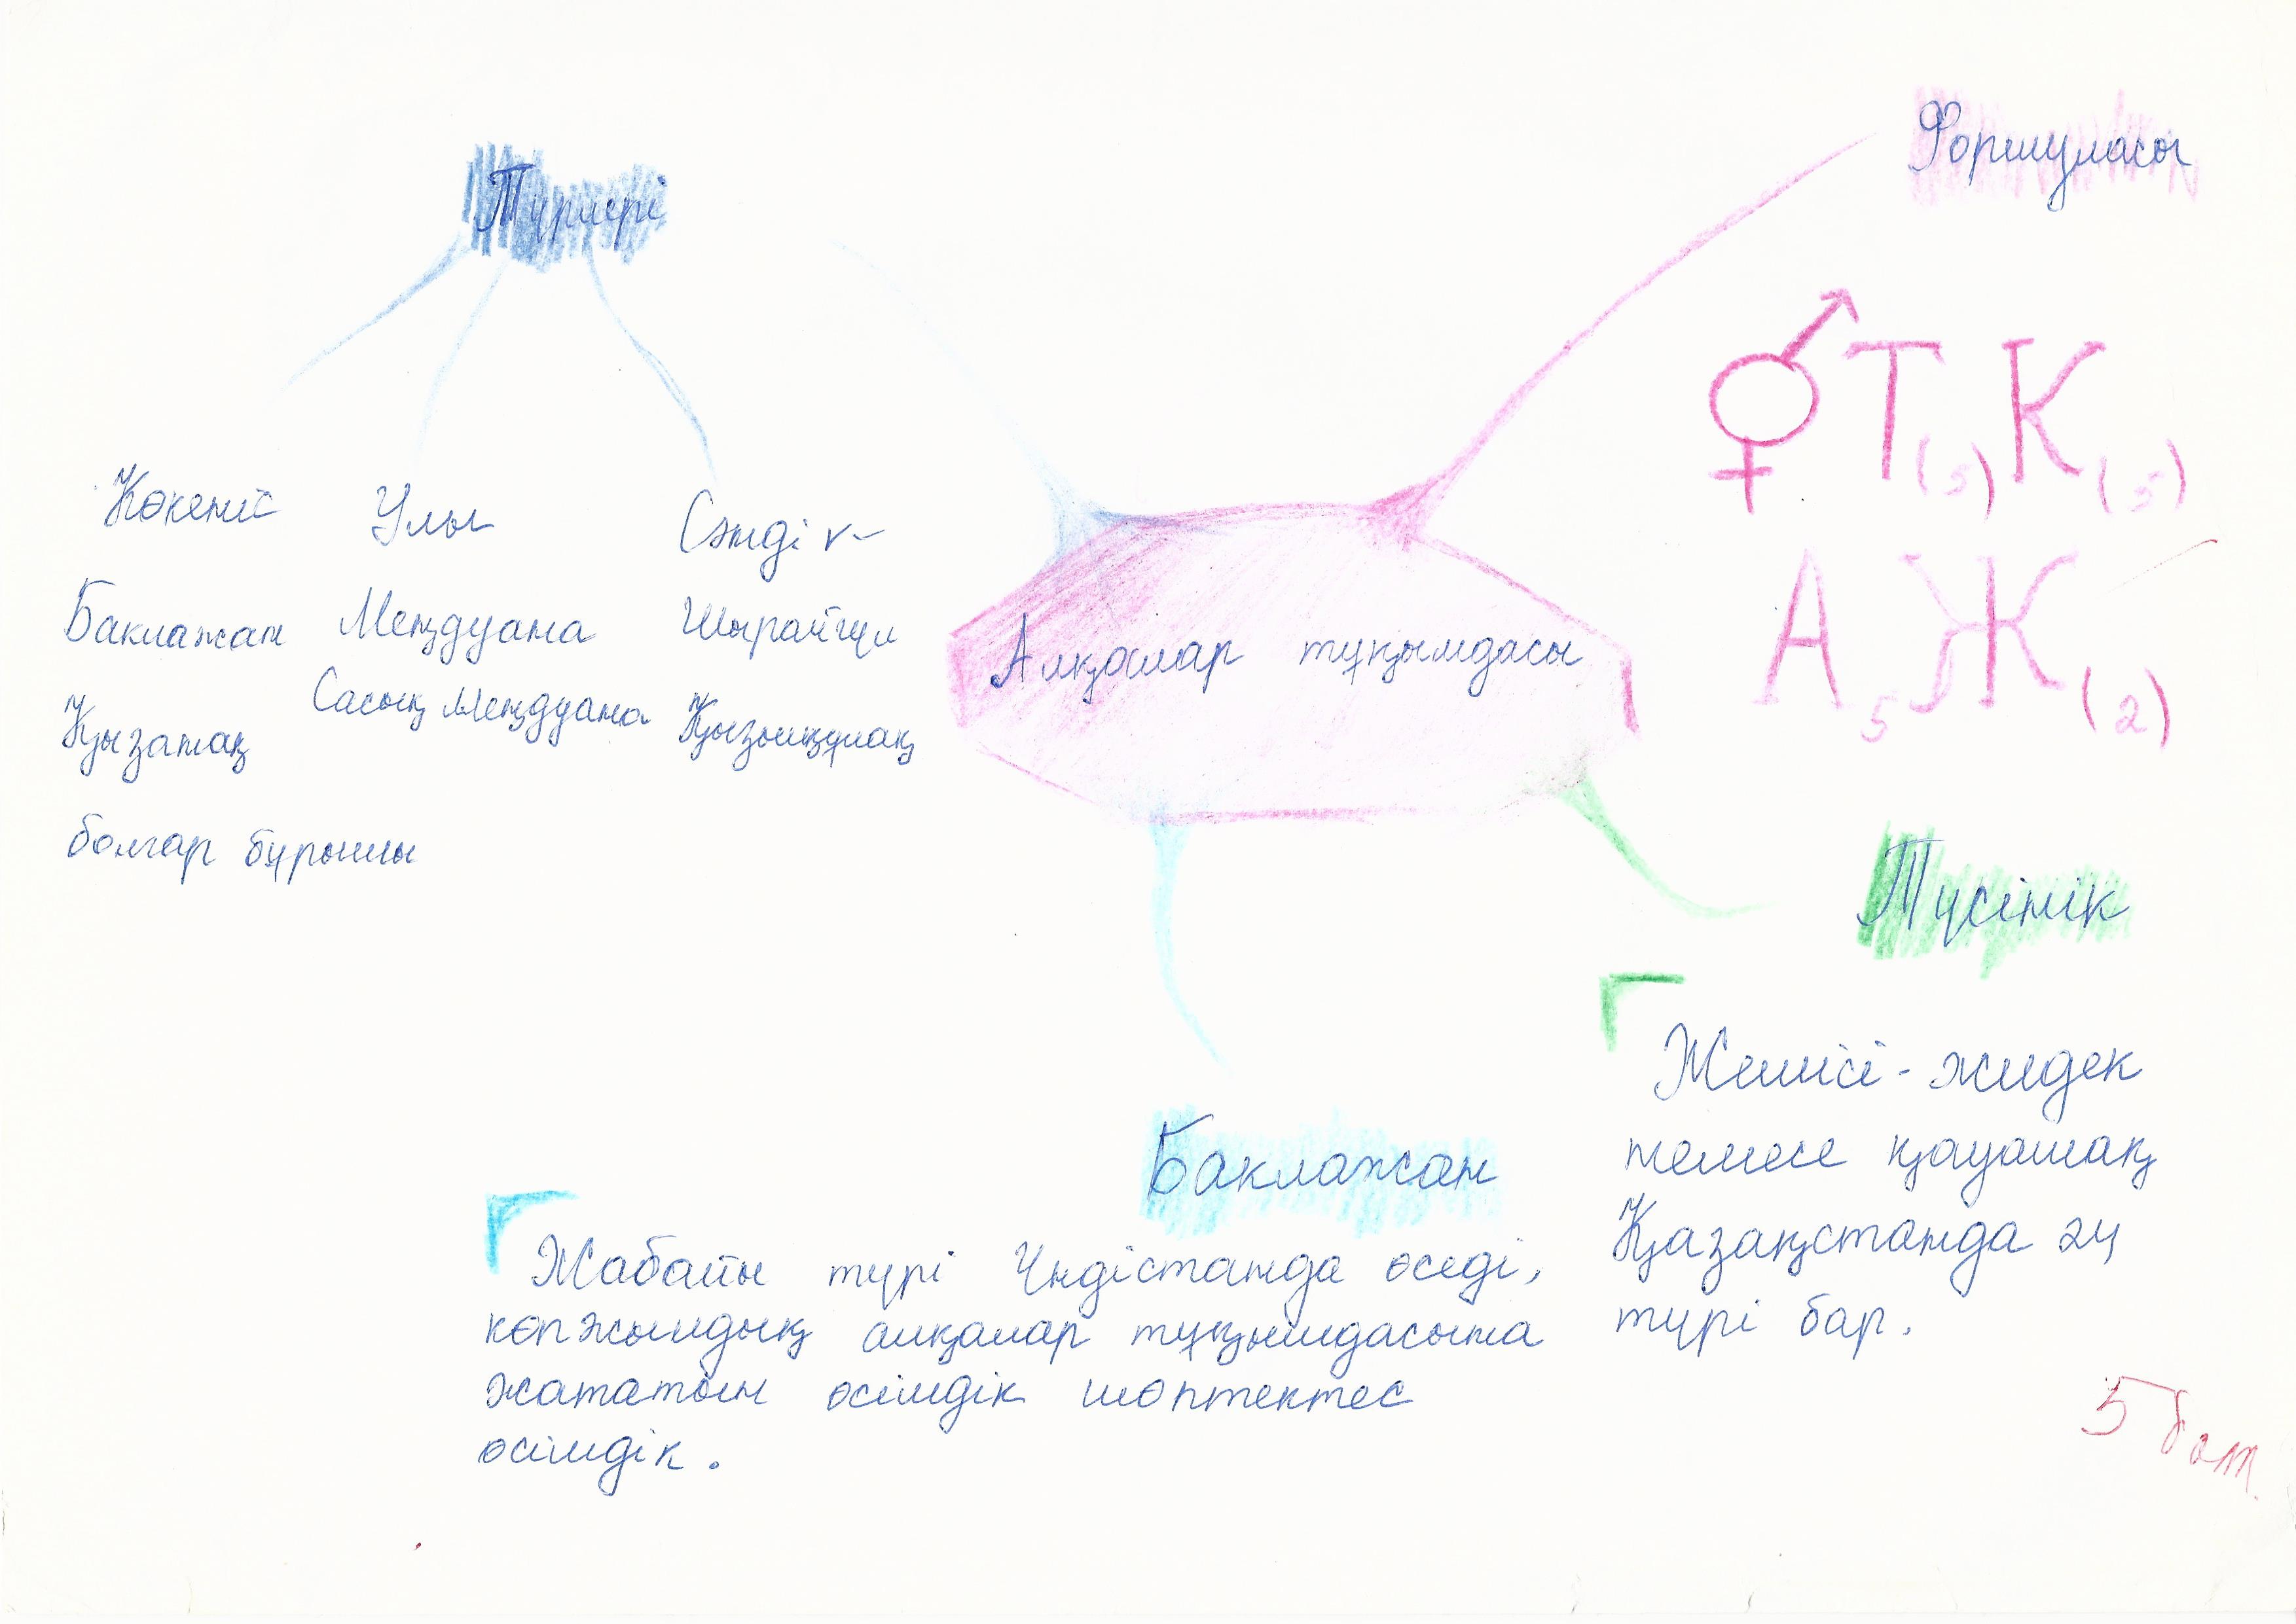 Түрлері
Көкөніс
Баклажан
Қызанақ
болгар бұрышы
Улы
Меңдуана
Сасық Меңдуана
Сәндік
Шырайгүл
Қызылқұлақ
Алқалар тұқымдасы
Формуласы
⚥Т(5)К(5)
А5Ж(2)
Түсінік
Жемісі - жидек
немесе қауашақ
Қазақстанда 24
түрі бар.
Баклажан
Жабайы түрі Үндістанда өседі,
көпжылдық алқалар тұқымдасына
жататын өсімдік шөптектес
өсімдік.
5 бал